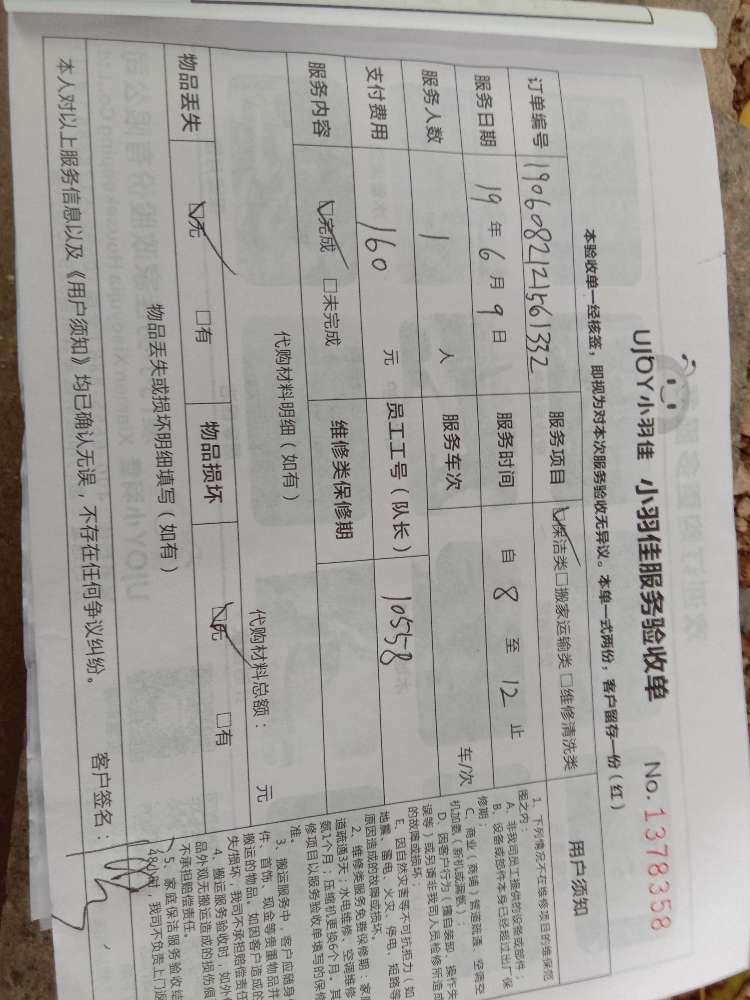 UJOY小羽佳 小羽佳服务验收单 No. 1378358
本验收单一经核签，即视为对本次服务验收无异议。本单一式两份，客户留存一份（红）
订单编号 1906082121561332 服务项目 ☑保洁类□搬家运输类□维修清洗类 用户须知
服务日期 19年6月9日 服务时间 自 8 至 12 止
服务人数 1 人 服务车次 车/次
支付费用 160 元 员工工号（队长） 10558
服务内容 ☑完成 □未完成 维修类保修期
代购材料明细（如有） 代购材料总额： 元
物品丢失 ☑无 □有 物品损坏 ☑无 □有
物品丢失或损坏明细填写（如有）
本人对以上服务信息以及《用户须知》均已确认无误，不存在任何争议纠纷。 客户签名：
1、下列情况不在维修项目的维保范
围之内：
A、非我司员工提供的设备或部件；
B、设备或部件本身已经超过出厂保
修期；
C、商业（商铺）管道疏通、空调空
机加氨（新机或漏氨）；
D、因客户行为（擅自装卸、操作失
误等）或另请非我司人员检修所造成
的故障或损坏；
E、因自然灾害等不可抗拒力（如
地震、雷电、火灾、停电、短路等
原因造成的故障或损坏。
2、维修类服务免费保修期：家
道疏通3天；水电维修、空调维修
氨1个月；压缩机更换6个月，其
修项目以服务验收单填写的保修
准。
3、搬运服务中，客户应随身
件、首饰、现金等贵重物品并
搬运的物品。如因客户造成的
失/损坏，我司不承担赔偿责任
4、搬运服务验收时，如外
品外观无搬运造成的损伤俱
不承担赔偿责任。
5、家庭保洁服务验收结
48小时，我司不负责上门返